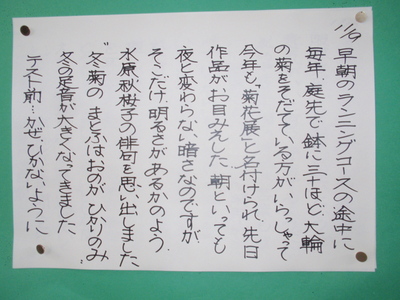 11/9 早朝のランニングコースの途中に
毎年、庭先で鉢に三十ほど、大輪
の菊をそだてている方がいらっしゃって
今年も「菊花展」と名付けられ、先日
作品がお目みえした。朝といっても
夜と変わらない暗さなのですが、
そこだけ、明るさがあるかのよう。
水原秋桜子の俳句を思い出しました
"冬菊の まとふはおのが ひかりのみ"
冬の足音が大きくなってきました
テスト前…かぜ、ひかないように